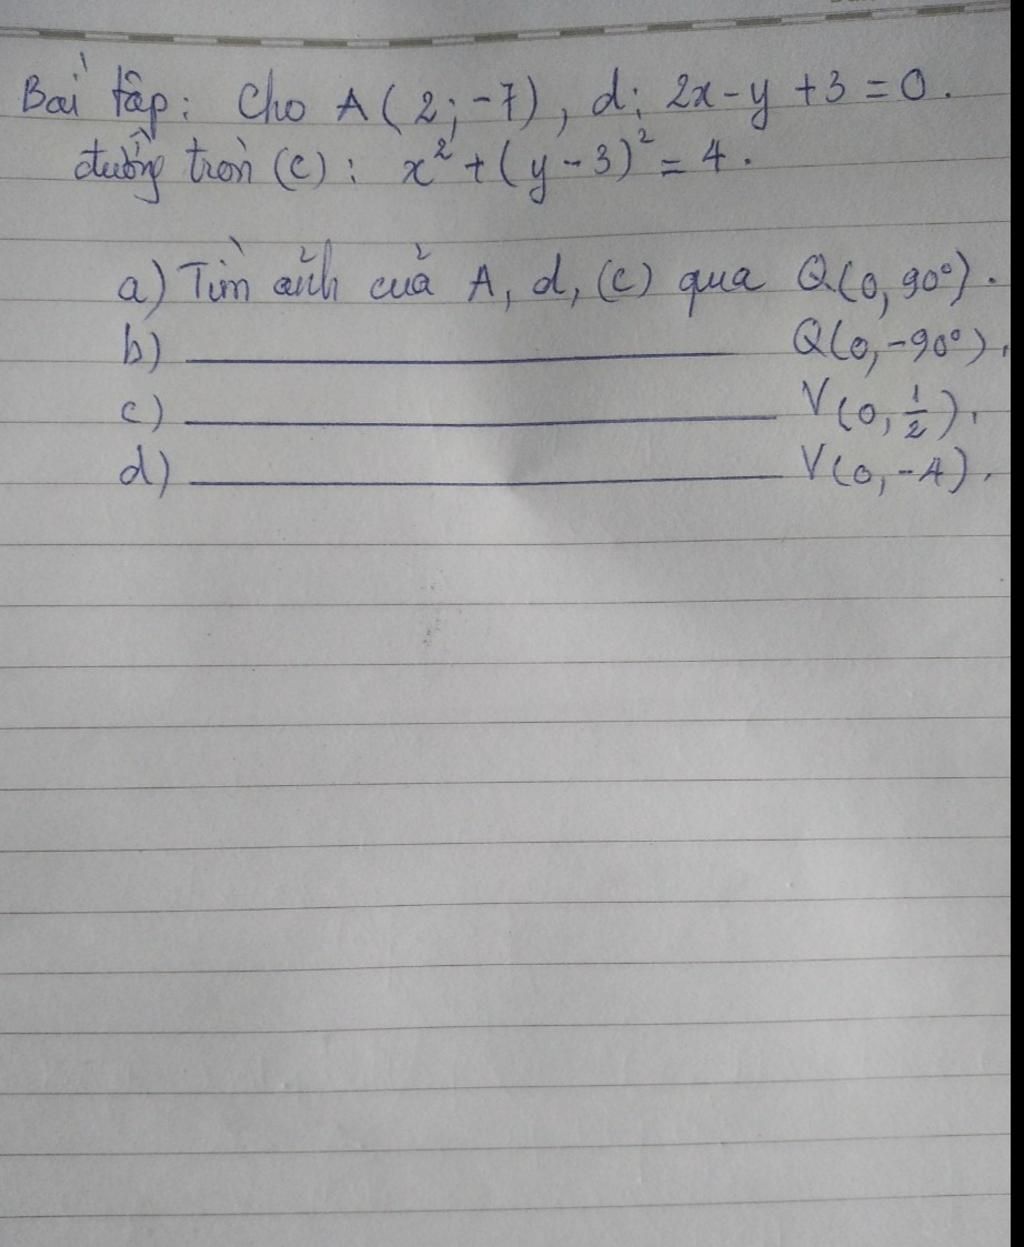 Bài tập: Cho A(2;-7), d: 2x-y+3=0.
đường tròn (C): x²+(y-3)²=4.
a) Tìm ảnh của A, d, (C) qua Q(0, 90°).
b) Q(0,-90°).
c) V(0, 1/2).
d) V(0,-4).